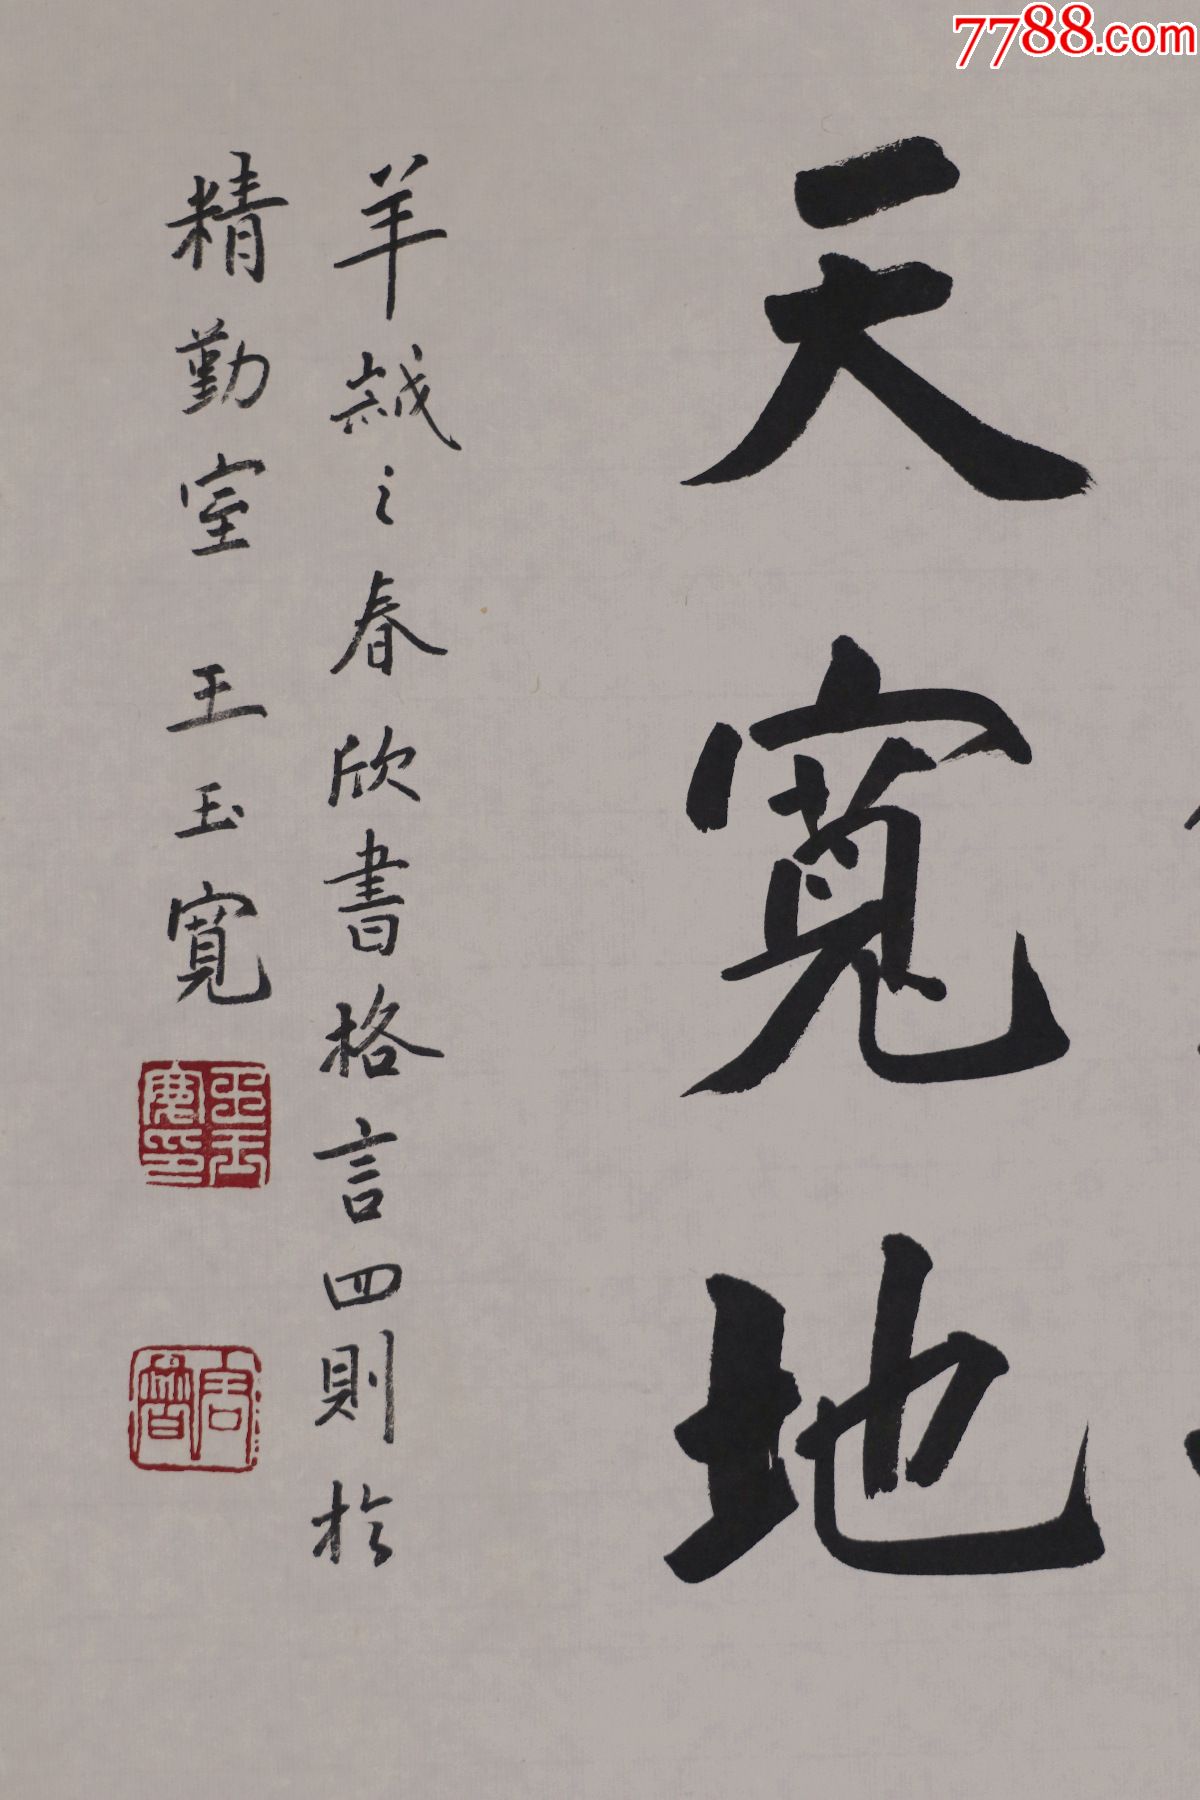 7788.com
天寬地
羊歲之春欣書格言四則於
精勤室 王玉寬
王玉寬印